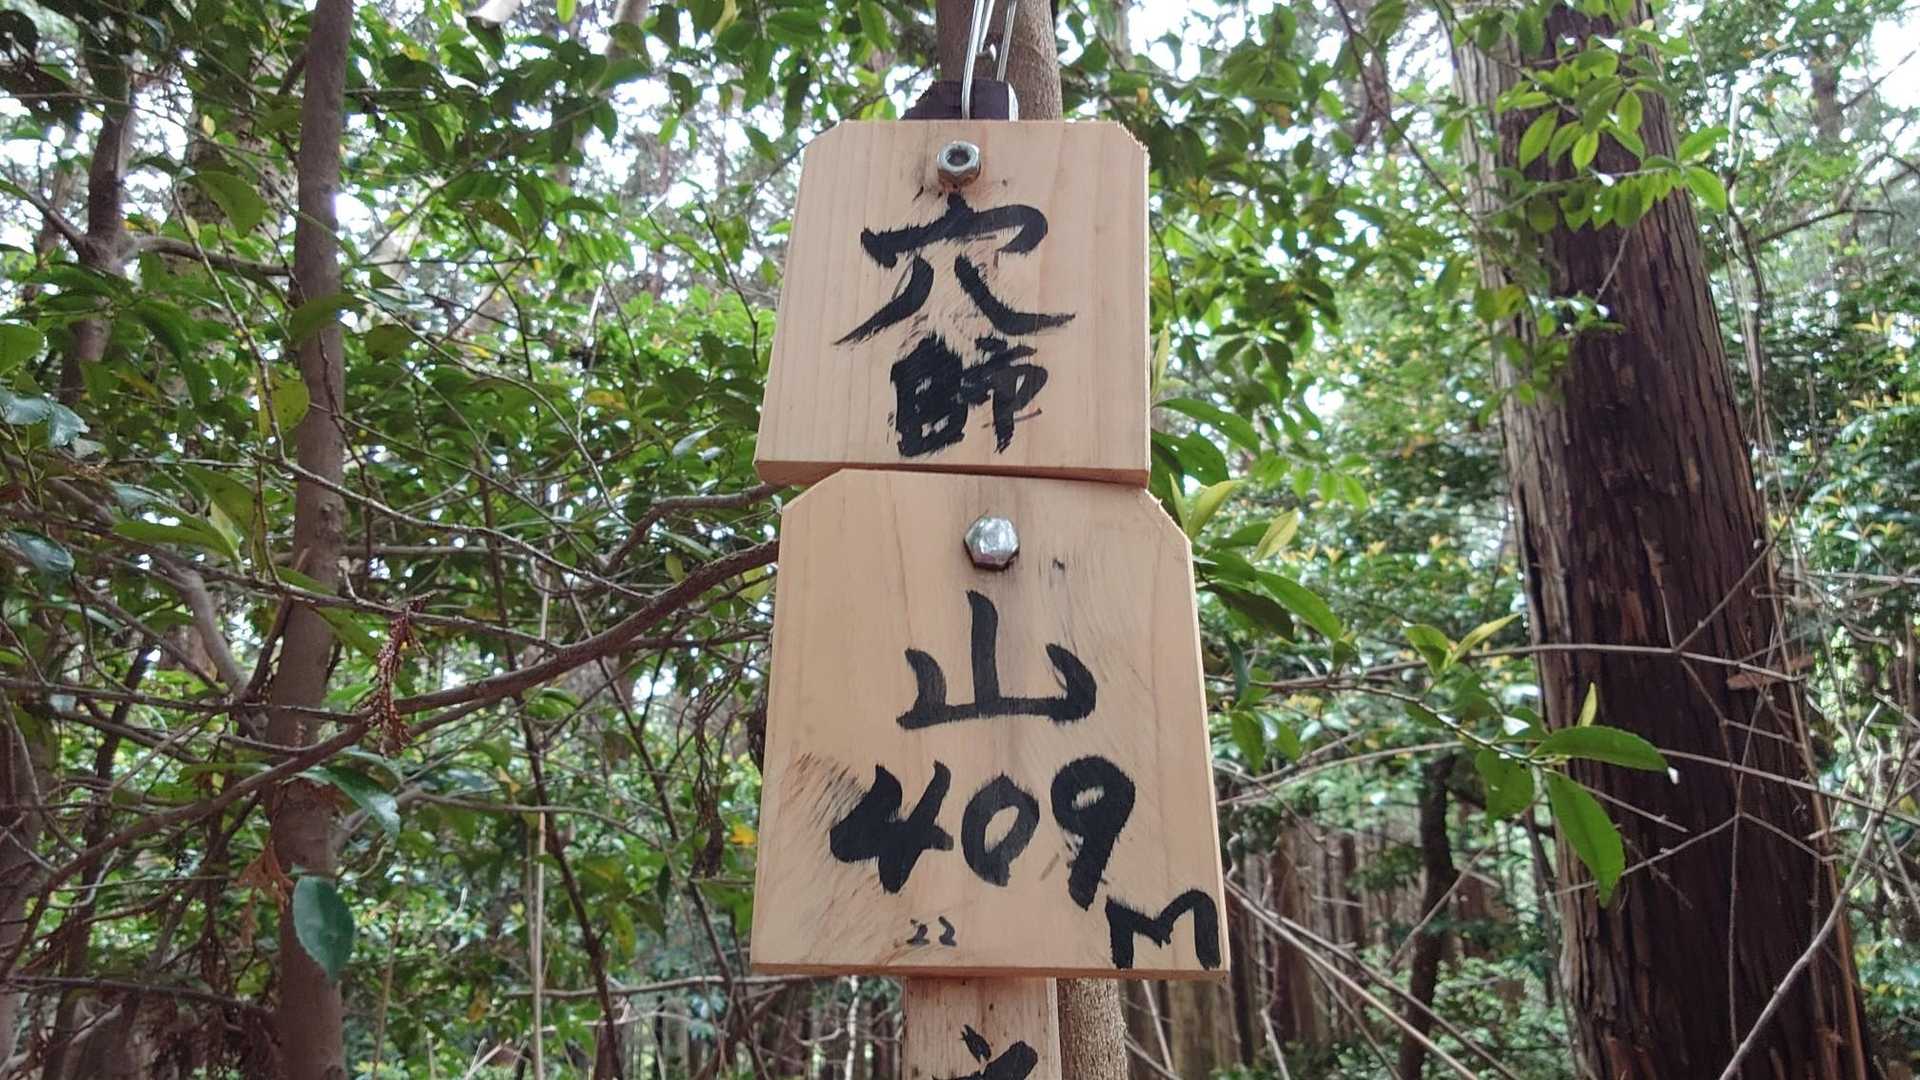 穴
師
山
409
M
22